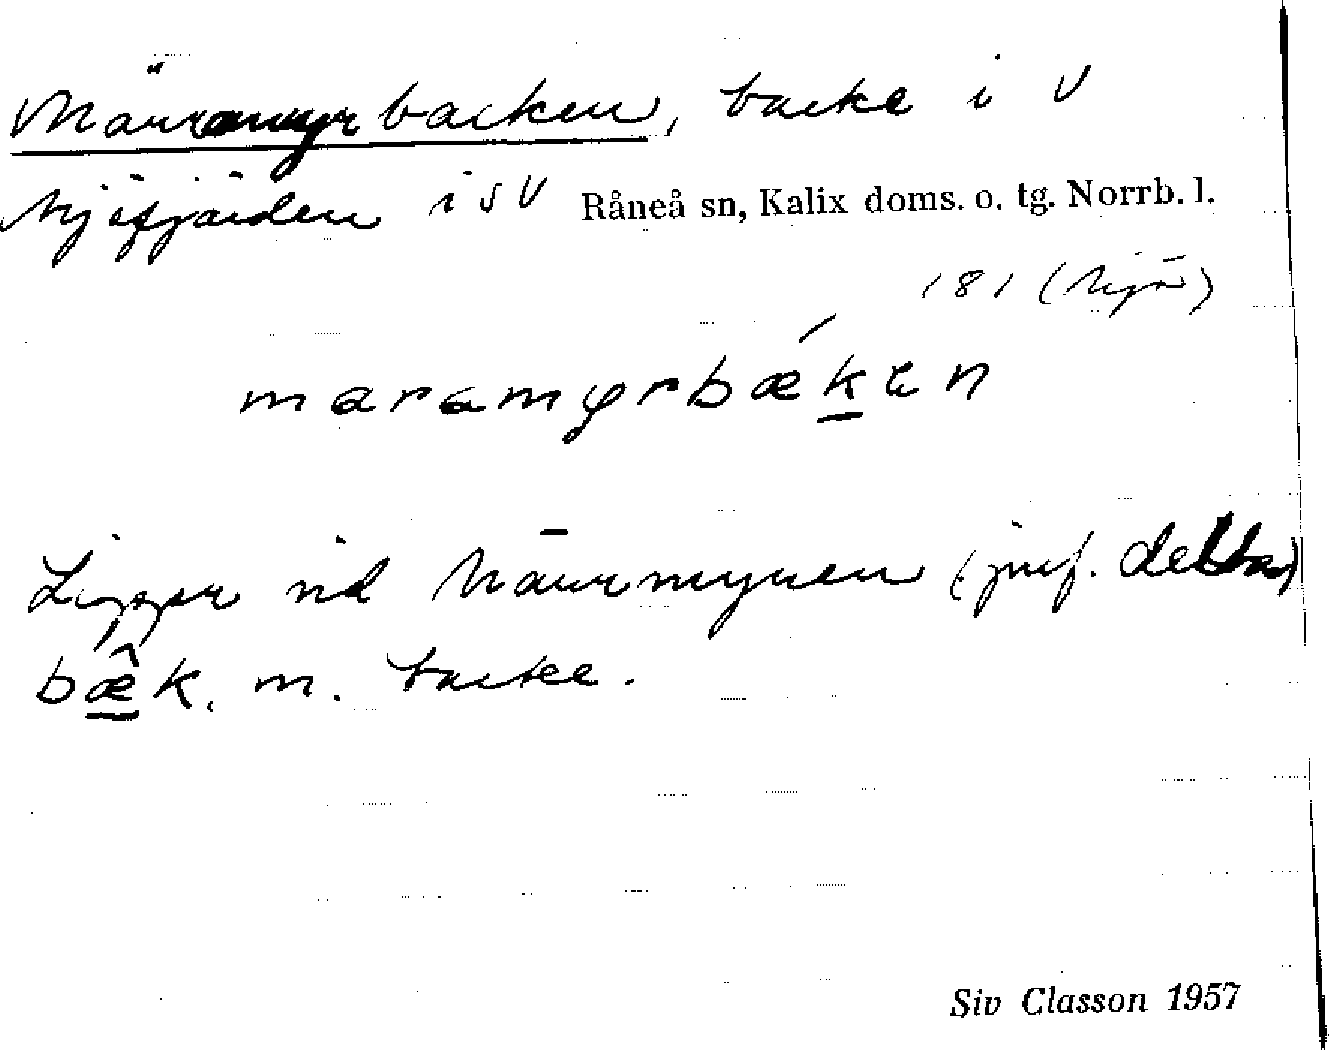 Märramyrbacken, backe i V
Mjöfjärden i SV Råneå sn, Kalix doms. o. tg. Norrb. l.
181 (Mjö)
maramyrbæken
Ligger vid Märrmyren (jmf. detta)
bæ̂k. m. backe.
Siv Classon 1957